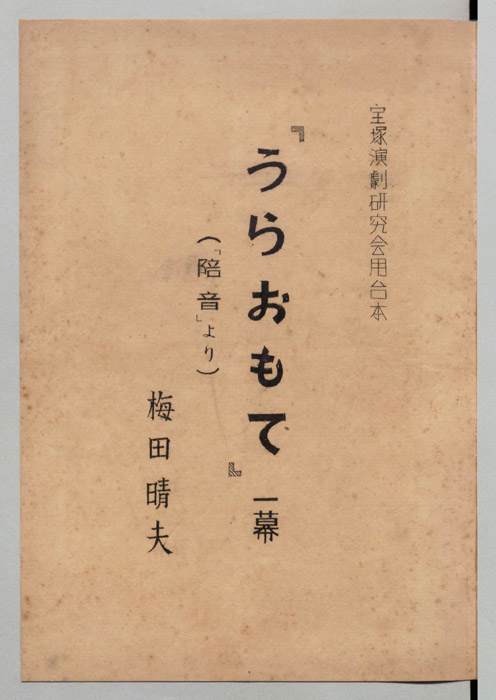 宝塚演劇研究会用台本
『うらおもて』一幕
（「陪音」より）
梅田晴夫